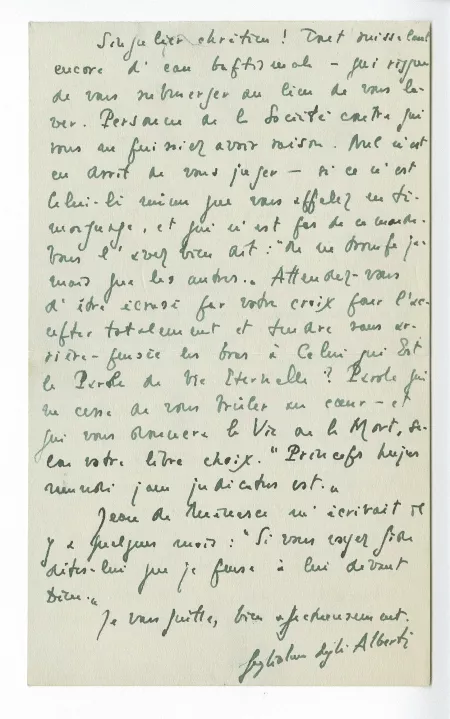 Singulier chrétien ! Tout ruisselant
encore d'eau baptismale – qui risque
de vous submerger au lieu de vous la-
ver. Personne de la Société contre qui
vous ne puissiez avoir raison. Nul n'est
en droit de vous juger – si ce n'est
Celui-là même que vous appelez en té-
moignage, et qui n'est pas de ce monde.
Vous l'avez bien dit : "On ne trompe ja-
mais que les autres". Attendez-vous
d'être écrasé par votre croix pour l'ac-
cepter totalement et tendre sans ar-
rière-pensée les bras à Celui qui Est
la Parole de Vie Eternelle ? Parole qui
ne cesse de vous brûler au cœur – et
qui vous donnera la Vie ou la Mort, se-
lon votre libre choix. "Princeps hujus
mundi jam judicatus est".
Jean de Menasce m'écrivait il
y a quelques mois : "Si vous voyez
dites-lui que je pense à lui devant
Dieu".
Je vous quitte, bien affectueusement.
Guglielmo degli Alberti